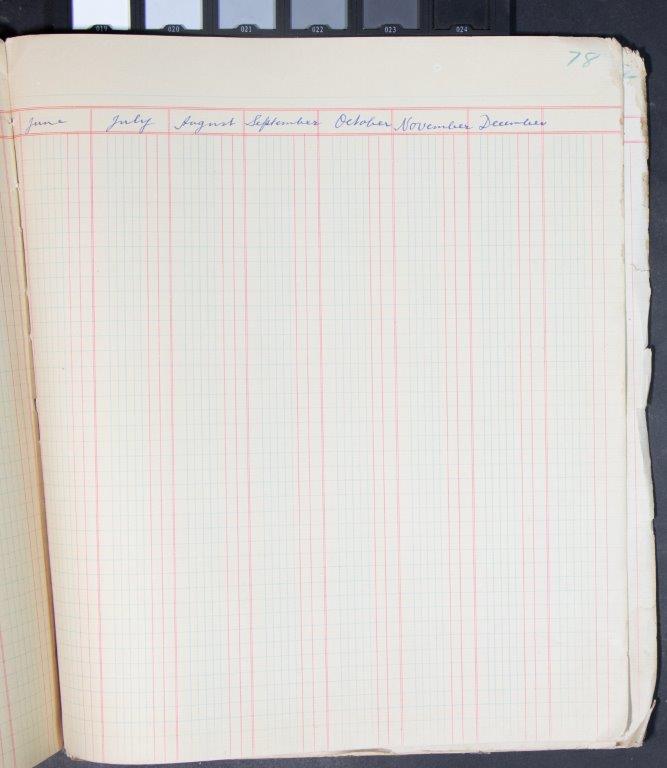 019 020 021 022 023 024
78
June July August September October November December